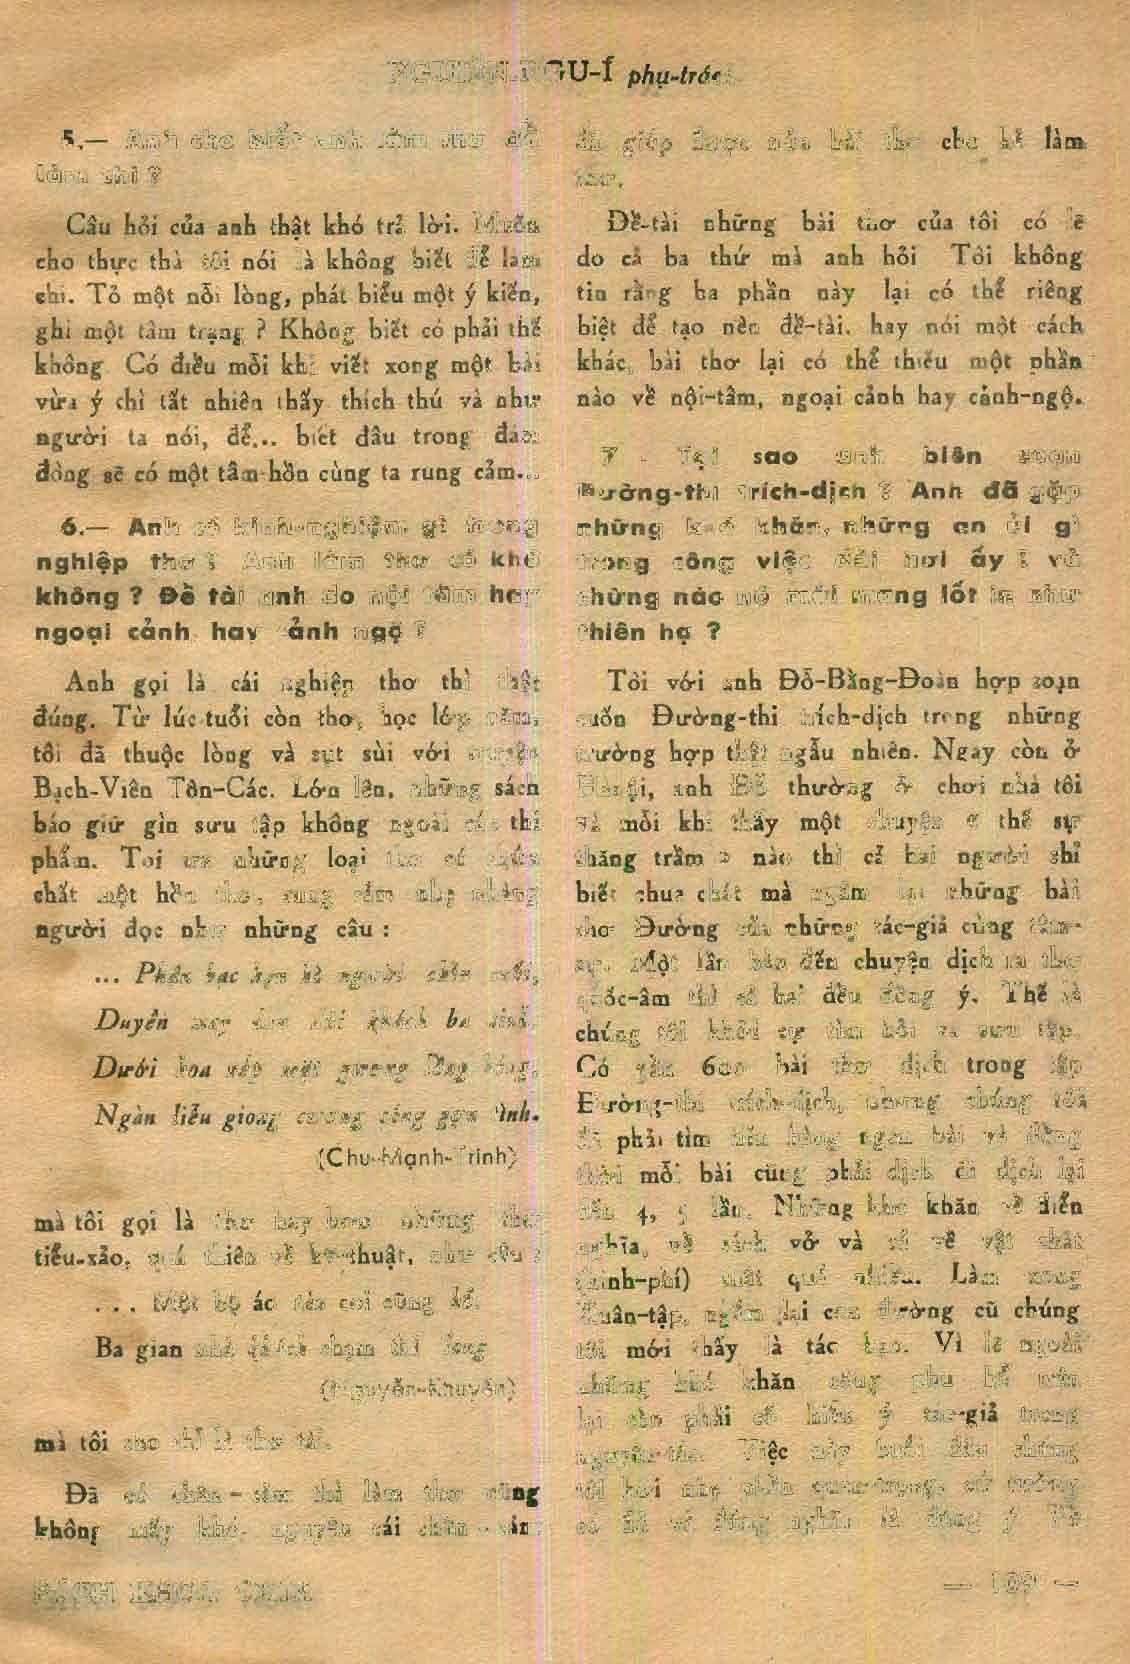 NGUIỄN NGU-Í phụ-trách
5.— Anh cho biết anh làm thơ để
làm chi ?
Câu hỏi của anh thật khó trả lời. Muốn
cho thực thà tôi nói là không biết để làm
chi. Tỏ một nỗi lòng, phát biểu một ý kiến,
ghi một tâm trạng ? Không biết có phải thế
không. Có điều mỗi khi viết xong một bài
vừa ý chỉ tất nhiên thấy thích thú và như
người ta nói, để... biết đâu trong đám
đông sẽ có một tâm-hồn cùng ta rung cảm...
6.— Anh có kinh-nghiệm gì trong
nghiệp thơ ? Anh làm thơ có khó
không ? Đề tài anh do nội tâm hay
ngoại cảnh hay cảnh ngộ ?
Anh gọi là cái nghiệp thơ thì thật
đúng. Từ lúc tuổi còn thơ, học lớp năm,
tôi đã thuộc lòng và sụt sùi với truyện
Bạch-Viên Tôn-Các. Lớn lên, những sách
báo giữ gìn sưu tập không ngoài các thi
phẩm. Tôi ưa những loại thơ có chứa
chất một hồn thơ, rung cảm nhẹ nhàng
người đọc như những câu :
... Phận bạc hẹn là người chín suối,
Duyên may đâu khách ba sinh.
Dưới hoa nép mặt gương lồng bóng,
Ngàn liễu giong cương sóng gợn tình.
(Chu-Mạnh-Trinh)
mà tôi gọi là thơ hay hơn những thơ
tiểu-xảo, quá thiên về kỹ-thuật, như câu :
... Một bộ áo sờn coi cũng
Ba gian nhà khách chạm thì lồng
(Nguyễn-Khuyến)
mà tôi cho chỉ là thơ tài.
Đã có chân-cảm thì làm thơ cũng
không mấy khó, nguyên cái chân-cảm
đã giúp được nửa bài thơ cho kẻ làm
thơ.
Đề-tài những bài thơ của tôi có lẽ
do cả ba thứ mà anh hỏi Tôi không
tin rằng ba phần này lại có thể riêng
biệt để tạo nên đề-tài. hay nói một cách
khác, bài thơ lại có thể thiếu một phần
nào về nội-tâm, ngoại cảnh hay cảnh-ngộ.
7 - Tại sao anh biên soạn
Đường-thi trích-dịch ? Anh đã gặp
những khó khăn, những an ủi gì
trong công việc dài hơi ấy ? và
chừng nào nó mới mang lốt ra như
thiên hạ ?
Tôi với anh Đỗ-Bằng-Đoàn hợp soạn
cuốn Đường-thi trích-dịch trong những
trường hợp thật ngẫu nhiên. Ngay còn ở
Hànội, anh Đỗ thường ở chơi nhà tôi
và mỗi khi thấy một chuyện « thế sự
thăng trầm » nào thì cả hai người chỉ
biết chua chát mà ngâm lại những bài
thơ Đường của những tác-giả cùng tâm-
sự. Một lần bàn đến chuyện dịch ra thơ
quốc-âm thì cả hai đều đồng ý. Thế là
chúng tôi khởi sự tìm hỏi và sưu tập.
Có gần 600 bài thơ dịch trong tập
Đường-thi trích-dịch, nhưng chúng tôi
đã phải tìm đến hàng ngàn bài và đồng
thời mỗi bài cũng phải dịch đi dịch lại
đến 4, 5 lần. Những khó khăn về diễn
nghĩa, về sách vở và cả về vật chất
(kinh-phí) thật quá nhiều. Làm xong
Xuân-tập, ngẫm lại con đường cũ chúng
tôi mới thấy là táo bạo. Vì lẽ ngoài
những khó khăn công phu kể trên
lại còn phải cố hiểu ý tác-giả trong
nguyên-tác. Việc này buổi đầu chúng
tôi hơi nhẹ phần quan-trọng, cứ tưởng
có đủ và đúng nghĩa là đúng ý. Về
BÁCH KHOA
— 109 —